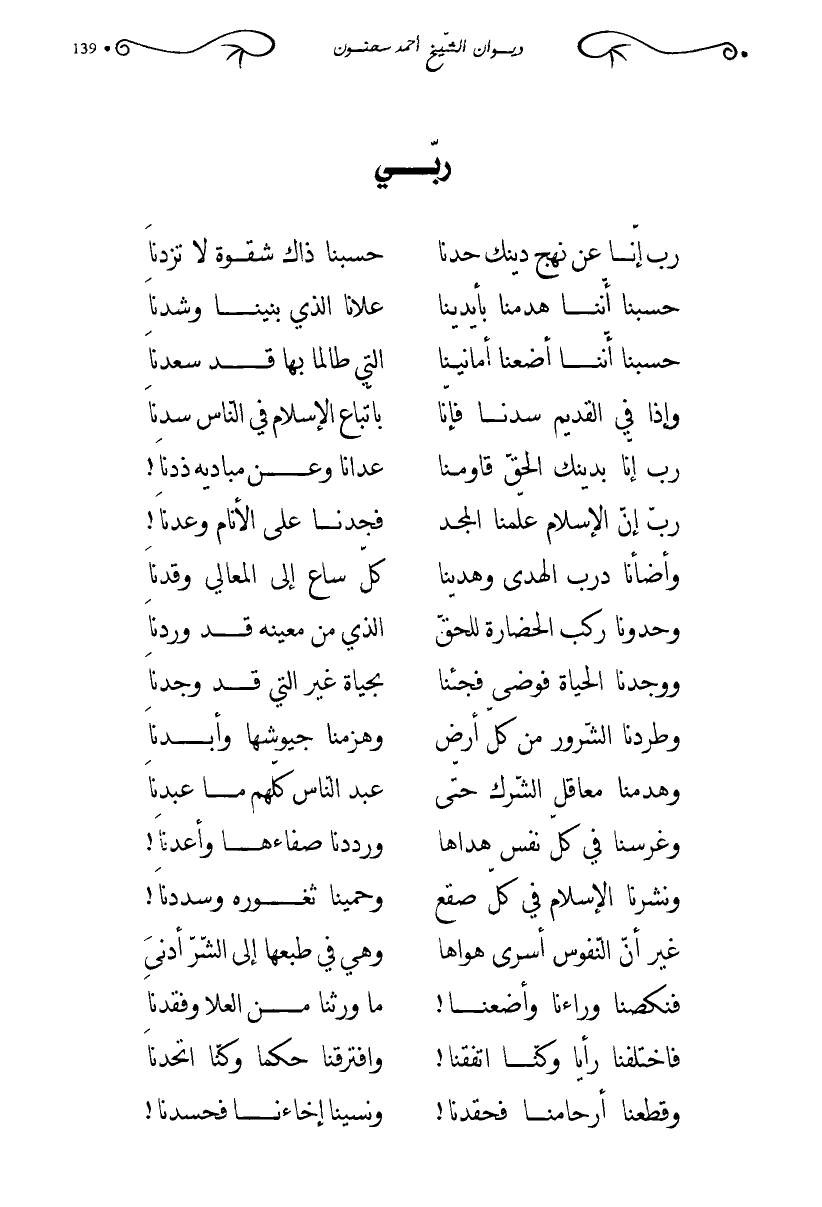 ديـوان الشّيخ أحمد سحنـون 139
ربّـــي
رب إنّـا عن نهج دينك حدنا حسبنا ذاك شقـوة لا تزدنا
حسبنا أنّنـــا هدمنا بأيدينا علانا الذي بنينـــا وشدنا
حسبنا أنّنـــا أضعنا أمانينا التي طالما بها قـــد سعدنا
وإذا في القديم سدنـا فإنا باتّباع الإسلام في النّاس سدنا
رب إنا بدينك الحقّ قاومنا عدانا وعـــن مباديه ذدنا !
ربّ إنّ الإسلام علّمنا المجد فجدنـا على الأنام وعدنا !
وأضأنا درب الهدى وهدينا كلّ ساع إلى المعالي وقدنا
وحدونا ركب الحضارة للحقّ الذي من معينه قـــد وردنا
ووجدنا الحياة فوضى فجئنا بحياة غير التي قـــد وجدنا
وطردنا الشّرور من كلّ أرض وهزمنا جيوشها وأبـــدنا
وهدمنا معاقل الشّرك حتّى عبد النّاس كلّهم مـا عبدنا
وغرسنا في كلّ نفس هداها ورددنا صفاءهـــا وأعدنا !
ونشرنا الإسلام في كلّ صقع وحمينا ثغـــوره وسددنا !
غير أنّ النّفوس أسرى هواها وهي في طبعها إلى الشّرّ أدنىَ
فنكصنا وراءنا وأضعنـــا ! ما ورثنا مـــن العلا وفقدنا
فاختلفنا رأيا وكنّـــا اتفقنا ! وافترقنا حكما وكنّا اتحدنا
وقطعنا أرحامنـا فحقدنا ! ونسينا إخاءنـــا فحسدنا !